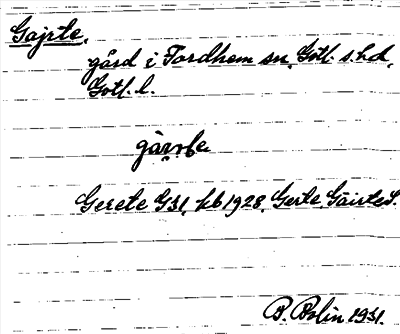 Gajrte.
gård i Fardhem sn, Gotl. s. hd,
Gotl. l.
Gerete GK1, kb 1928, Gerte, Gairte S.
P. Bolin 1931.